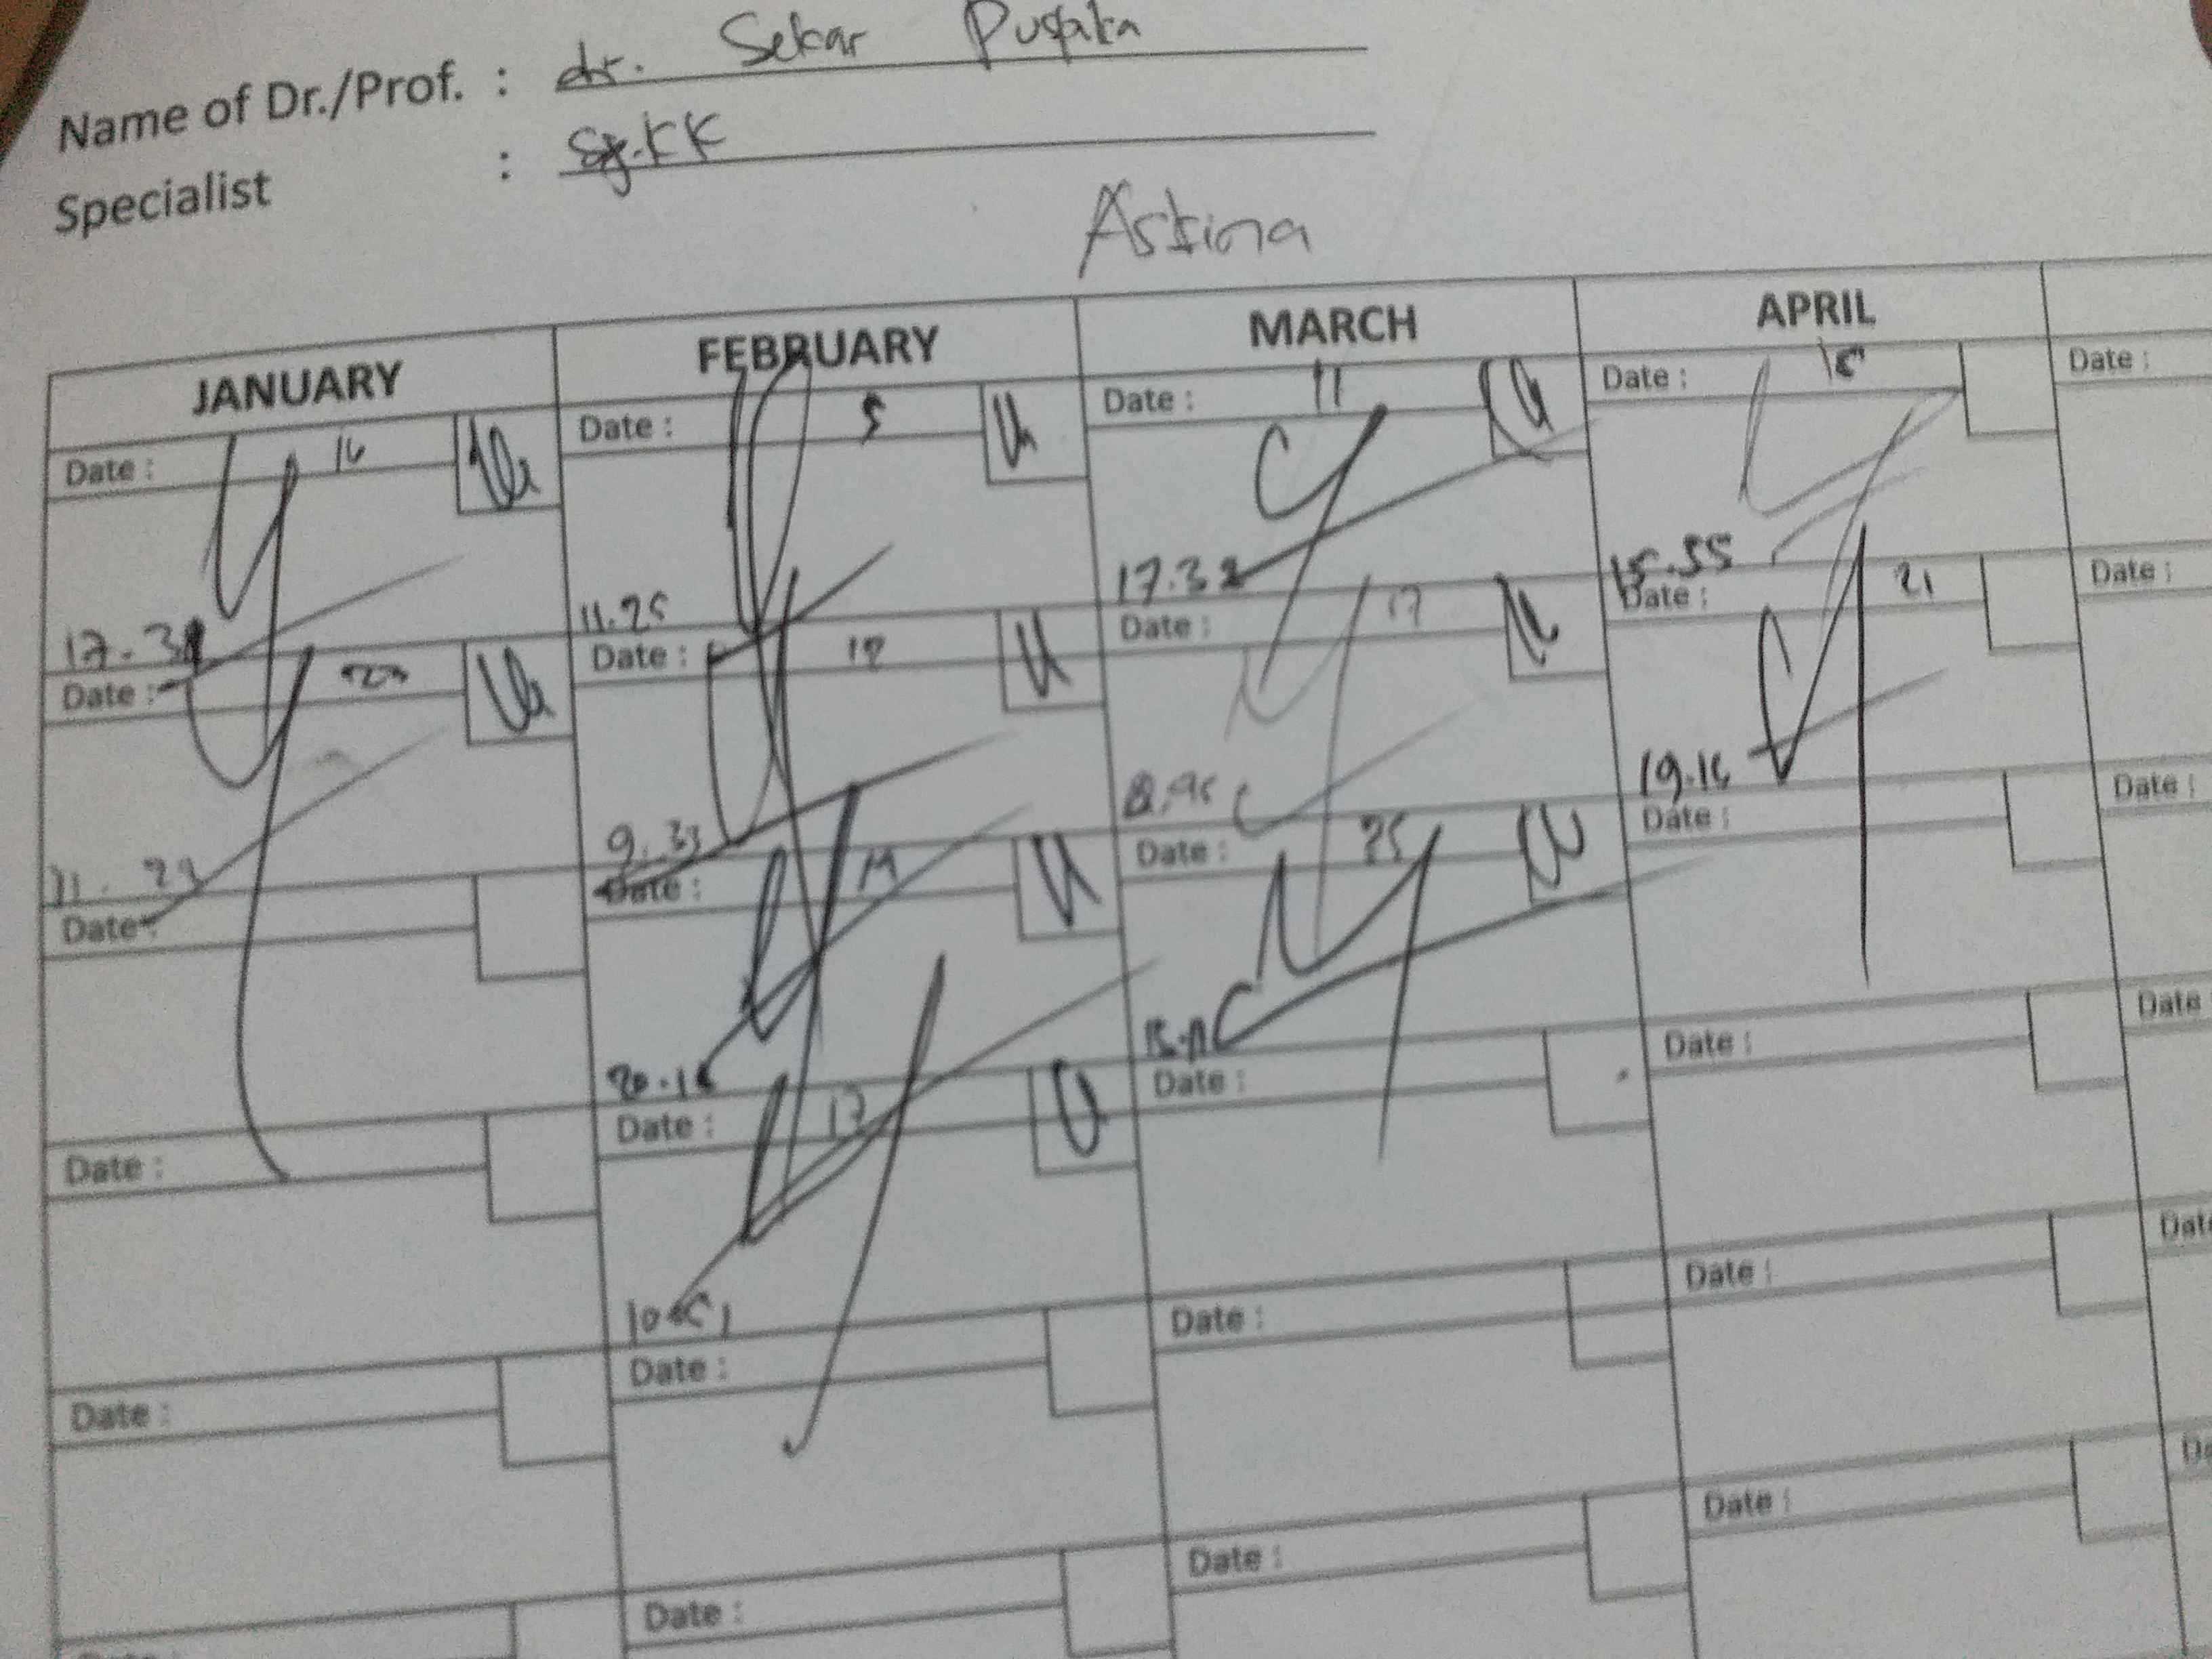 Name of Dr./Prof. : dr. Sekar Pustaka
Specialist : Sp.KK
Astina
JANUARY FEBRUARY MARCH APRIL
Date : 16 Date : 5 Date : 11 Date : 15 Date :
17.31 11.25 17.32 15.55
Date : 23 Date : 12 Date : 17 Date : 21 Date :
11.23 9.33 19.16
Date : Date : 14 Date : 25 Date : Date :
20.16
Date : Date : 17 Date : Date : Date
10.51
Date : Date : Date : Date : Date
Date : Date : Date :